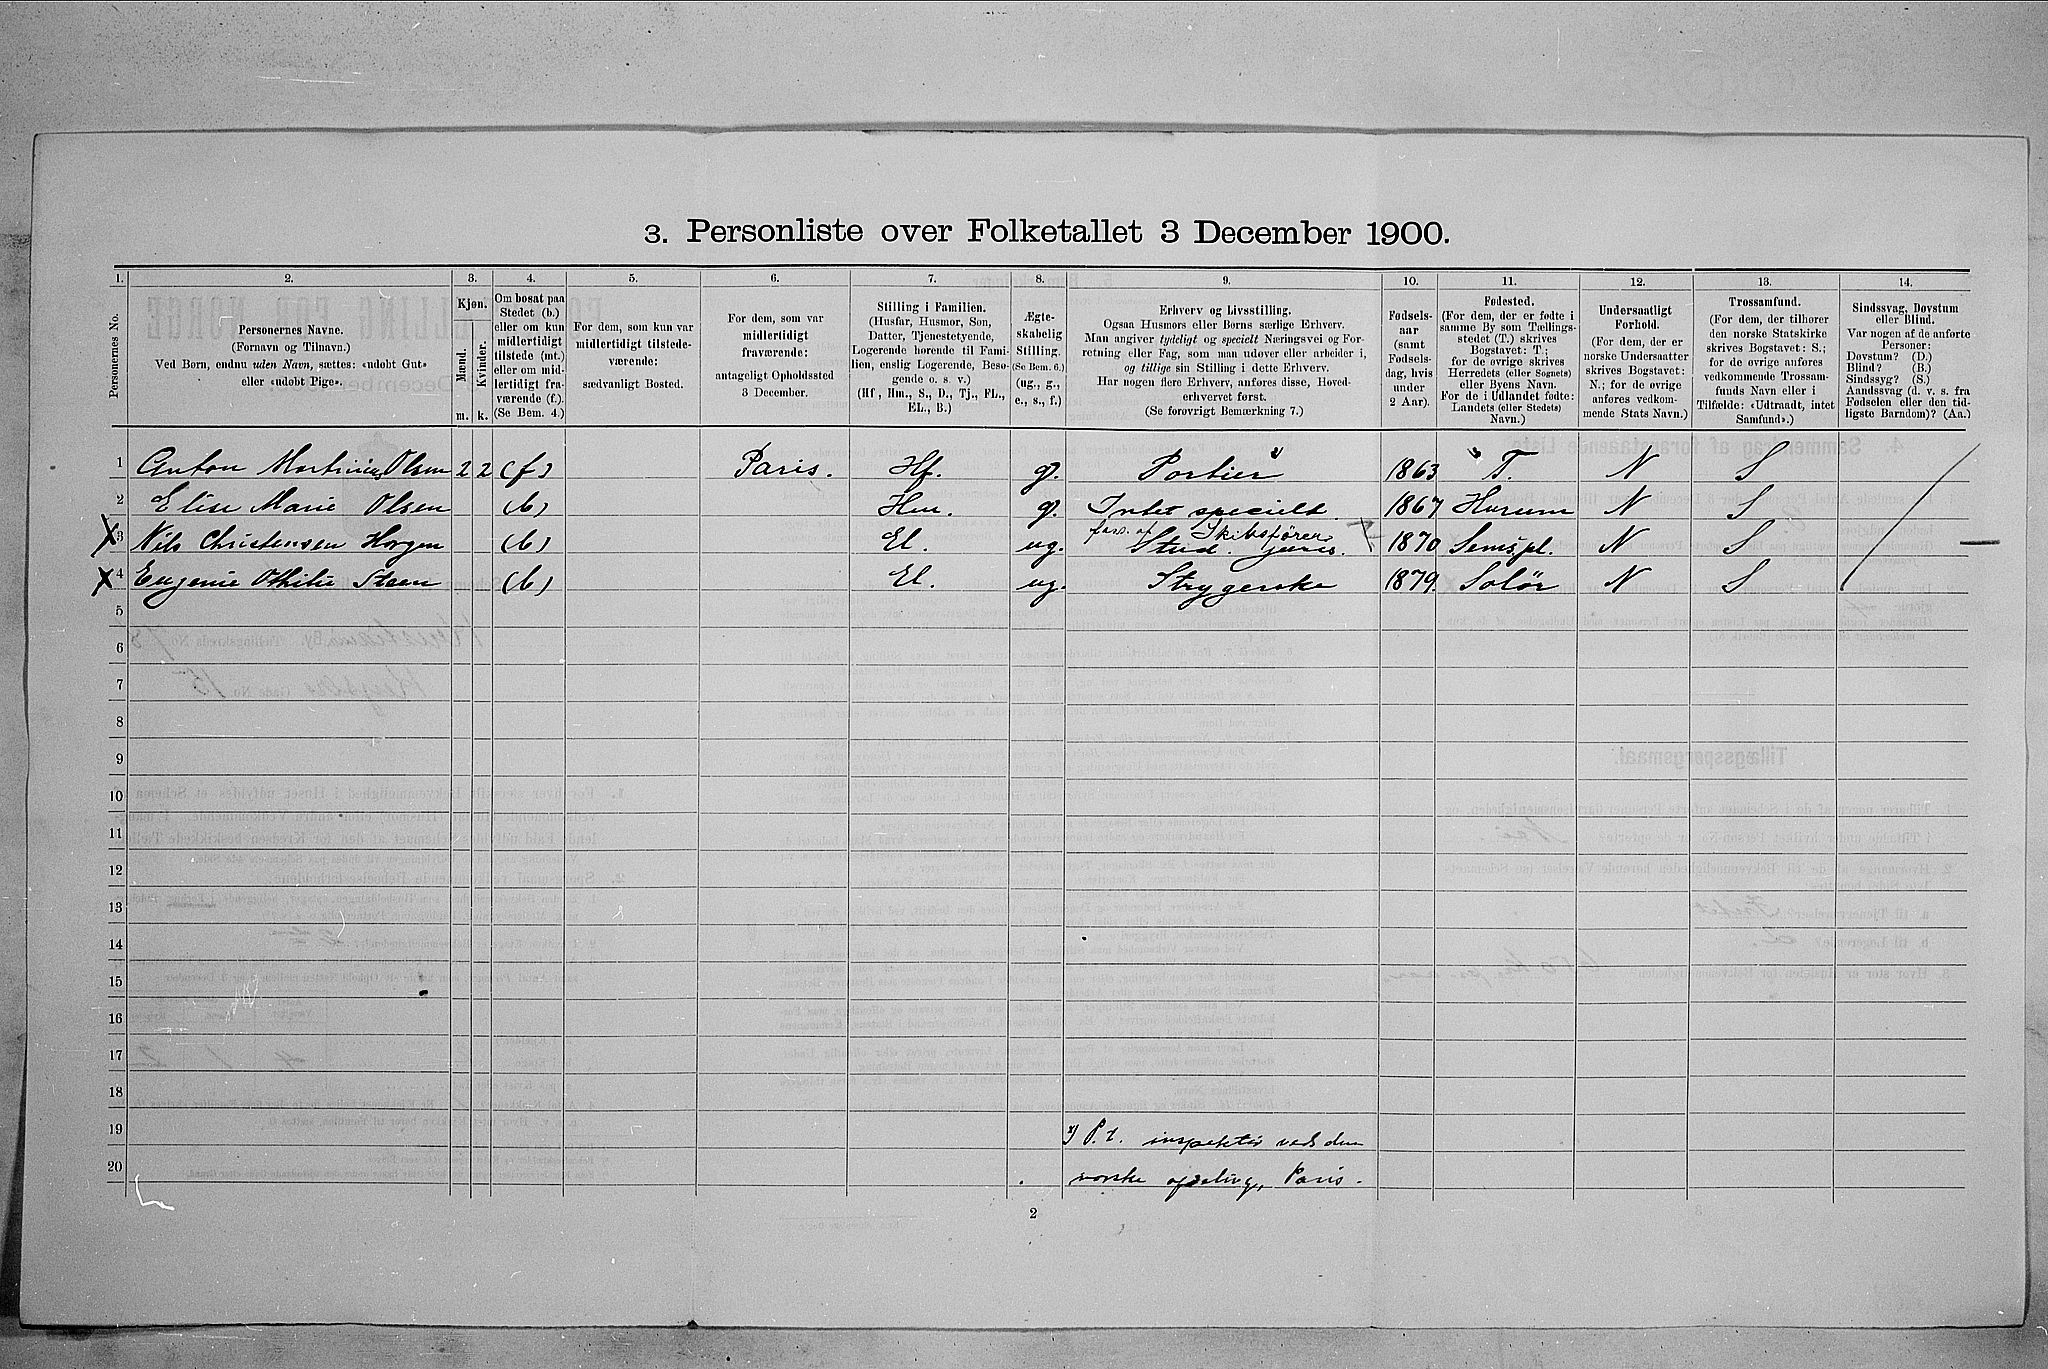 3. Personliste over Folketallet 3 December 1900.
1. 2. 3. 4. 5. 6. 7. 8. 9. 10. 11. 12. 13. 14.
Personernes No.
Personernes Navne.
(Fornavn og Tilnavn.)
Ved Børn, endnu uden Navn, sættes: «udøbt Gut»
eller «udøbt Pige».
Kjøn.
Mænd.
Kvinder.
m. k.
Om bosat paa
Stedet (b.)
eller om kun
midlertidigt
tilstede (mt.)
eller om mid-
lertidigt fra-
værende (f.).
(Se Bem. 4.)
For dem, som kun var
midlertidigt tilstede-
værende:
sædvanligt Bosted.
For dem, som var
midlertidigt
fraværende:
antageligt Opholdssted
3 December.
Stilling i Familien.
(Husfar, Husmor, Søn,
Datter, Tjenestetyende,
Logerende hørende til Fami-
lien, enslig Logerende, Besø-
gende o. s. v.)
(Hf., Hm., S., D., Tj., FL.,
EL., B.)
Ægte-
skabelig
Stilling.
(Se Bem. 6.)
(ug., g.,
e., s., f.)
Erhverv og Livsstilling.
Ogsaa Husmors eller Børns særlige Erhverv.
Man angiver tydeligt og specielt Næringsvei og For-
retning eller Fag, som man udøver eller arbeider i,
og tillige sin Stilling i dette Erhverv.
Har nogen flere Erhverv, anføres disse, Hoved-
erhvervet først.
(Se forøvrigt Bemærkning 7.)
Fødsels-
aar
(samt
Fødsels-
dag, hvis
under
2 Aar).
Fødested.
(For dem, der er fødte i
samme By som Tællings-
stedet (T.) skrives
Bogstavet: T.;
for de øvrige skrives
Herredets (eller Sognets)
eller Byens Navn.
For de i Udlandet fødte:
Landets (eller Stedets)
Navn.)
Undersaatligt
Forhold.
(For dem, der er
norske Undersaatter
skrives Bogstavet:
N.; for de øvrige
anføres vedkom-
mende Stats Navn.)
Trossamfund.
(For dem, der tilhører
den norske Statskirke
skrives Bogstavet: S.;
for de øvrige anføres
vedkommende Trossam-
funds Navn eller i
Tilfælde: «Udtraadt, intet
Samfund».)
Sindssvag, Døvstum
eller Blind.
Var nogen af de anførte
Personer:
Døvstum? (D.)
Blind? (B.)
Sindssyg? (S.)
Aandssvag (d. v. s. fra
Fødselen eller den tid-
ligste Barndom)? (Aa.)
1 Anton Martinius Olsen 2 2 (f) Paris. Hf. g. Portier 1863 T. N S
2 Elise Marie Olsen (b) Hm. g. Intet specielt. 1867 Hurum N S
Skibsfører
3 Nils Christensen Horgen (b) El. ug. Stud. juris. 1870 Semspl. N S
4 Eugenie Othilie Steen (b) El. ug. Strygerske 1879. Solør N S
5
6
7
8
9
10
11
12
13
14
15
16
17
18
19 P. t. inspektør ved den
20 norske afdeling, Paris.
2